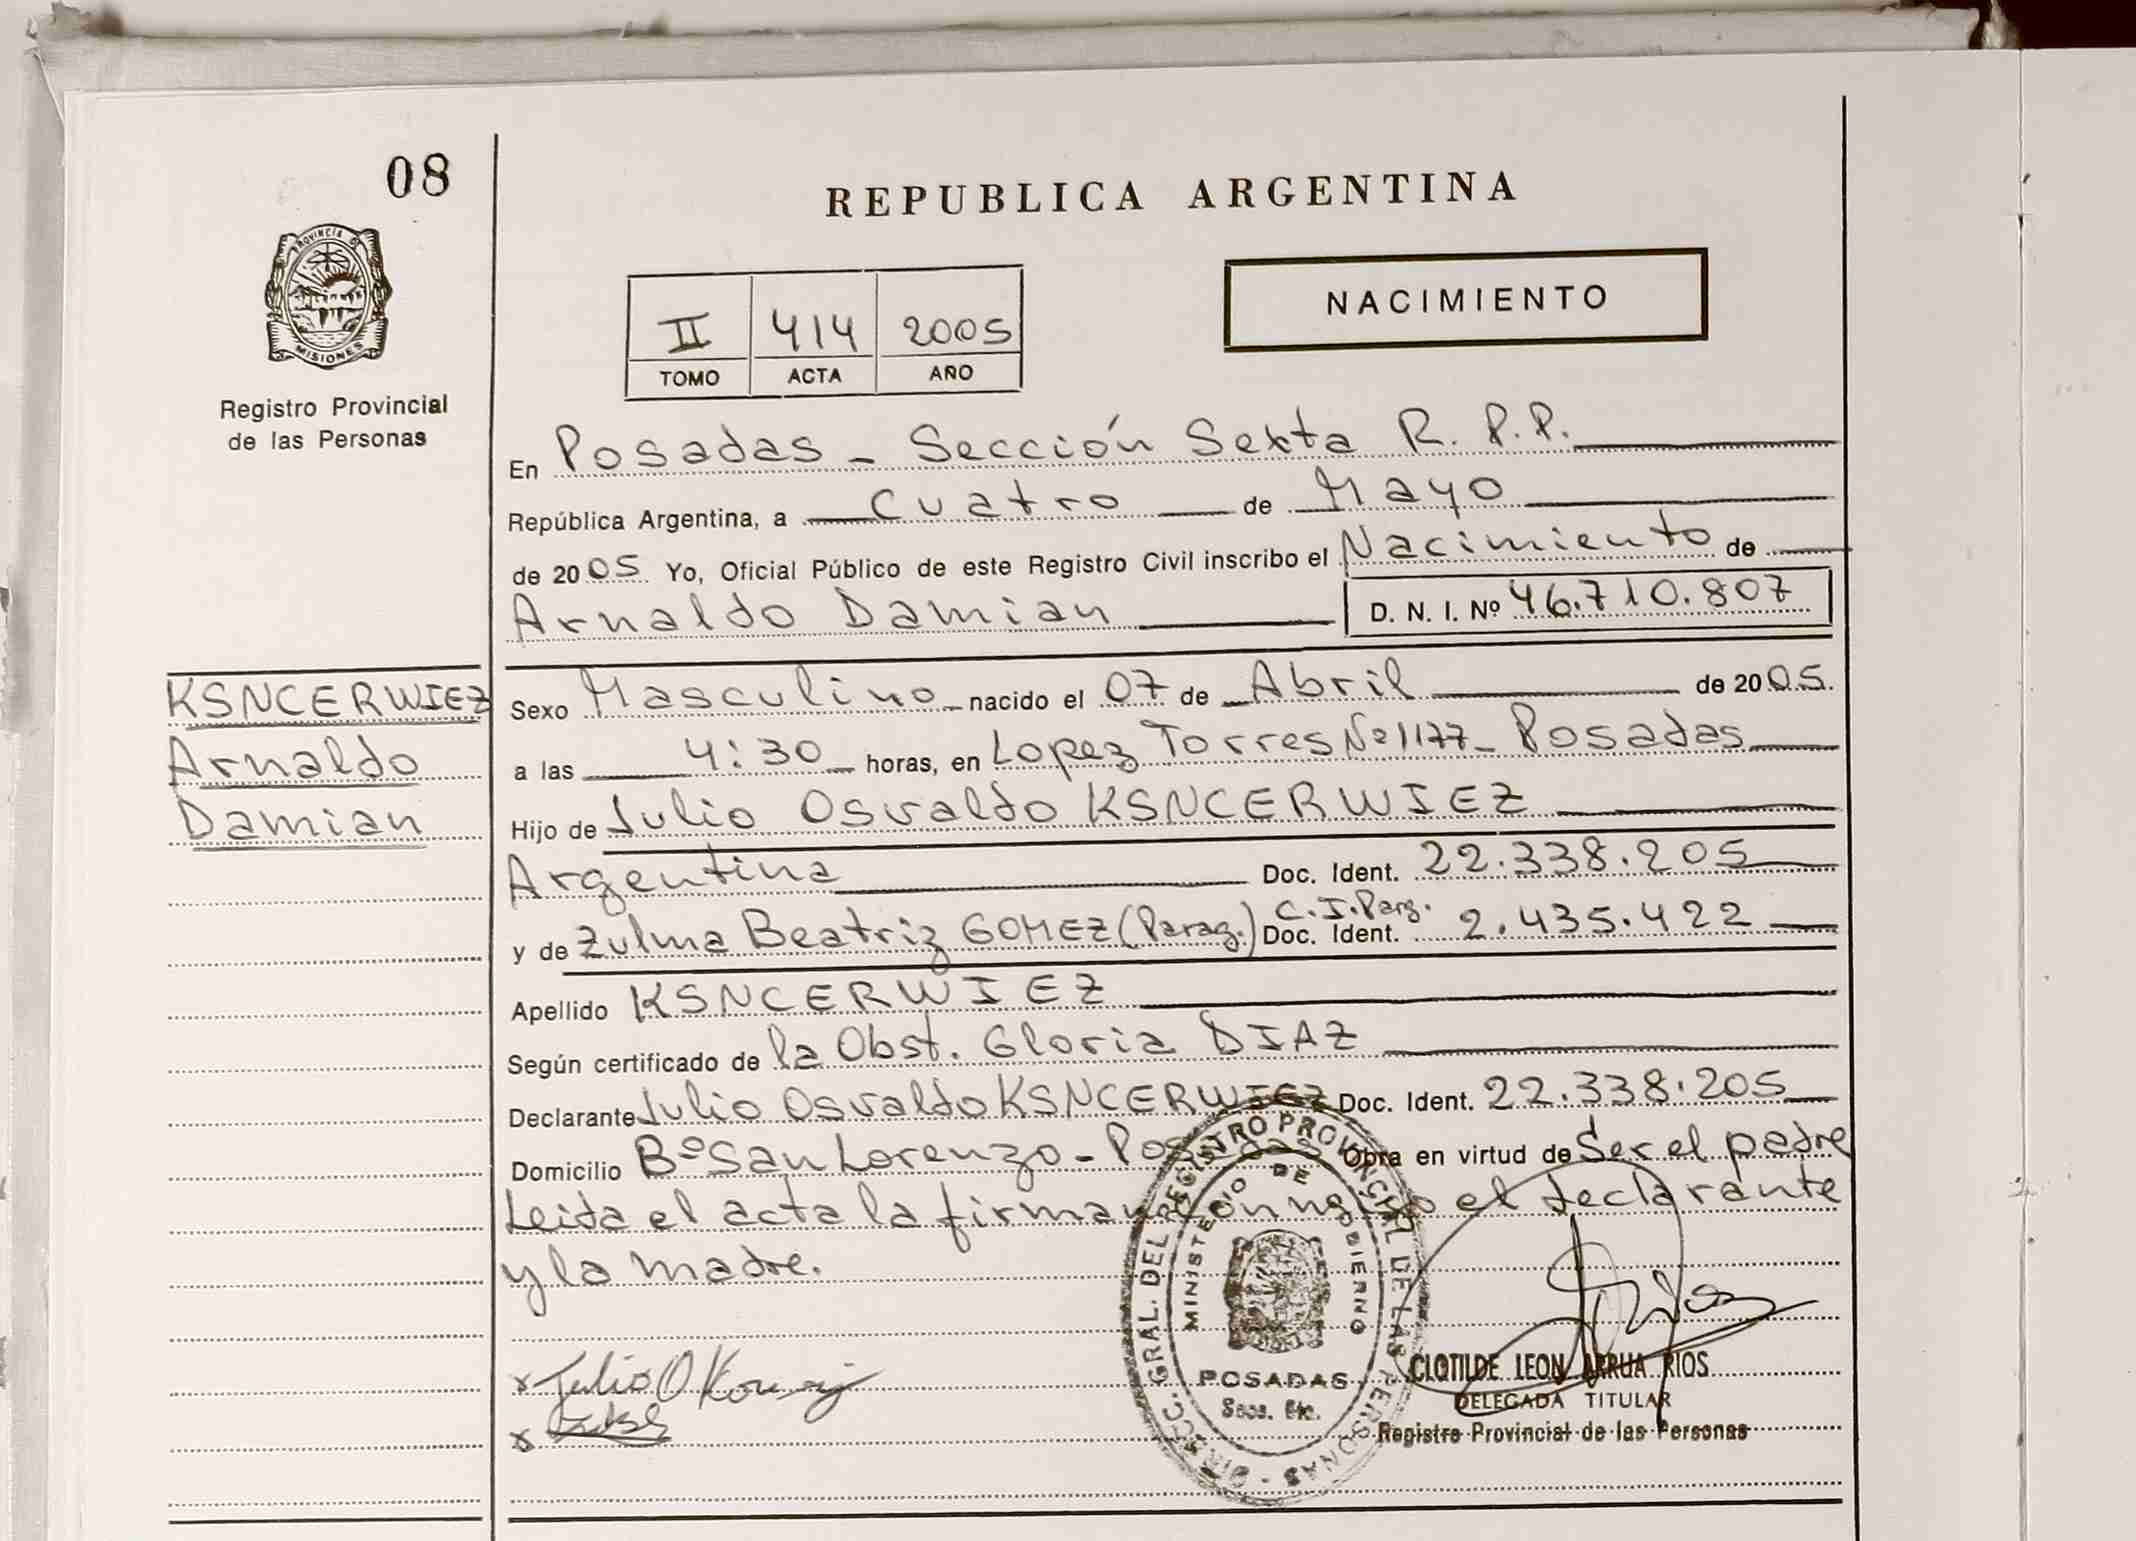 08
REPUBLICA ARGENTINA
PROVINCIA DE
MISIONES
Registro Provincial
de las Personas
II 414 2005
TOMO ACTA AÑO
NACIMIENTO
En Posadas - Sección Sexta R.P.P.
República Argentina, a cuatro de Mayo
de 2005 Yo, Oficial Público de este Registro Civil inscribo el Nacimiento de
Arnaldo Damian D. N. I. Nº 46.710.807
KSNCERWIEZ
Arnaldo
Damian
Sexo Masculino nacido el 07 de Abril de 2005.
a las 4:30 horas, en Lopez Torres Nº 1177 - Posadas
Hijo de Julio Osvaldo KSNCERWIEZ
Argentina Doc. Ident. 22.338.205
y de Zulma Beatriz GOMEZ (Parag.) C.I.Parg. Doc. Ident. 2.435.422
Apellido KSNCERWIEZ
Según certificado de la Obst. Gloria DIAZ
Declarante Julio Osvaldo KSNCERWIEZ Doc. Ident. 22.338.205
Domicilio Bº San Lorenzo - Posadas Obra en virtud de Ser el padre
Leida el acta la firman conmigo el declarante
y la madre.
x Julio O
x
DIRECC. GRAL. DEL REGISTRO PROVINCIAL DE LAS PERSONAS
MINISTERIO DE GOBIERNO
POSADAS
CLOTILDE LEON ARRUA RIOS
DELEGADA TITULAR
Registro Provincial de las Personas